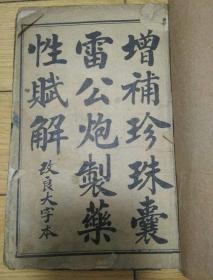 增補珍珠囊
雷公炮製藥
性賦解
改良大字本